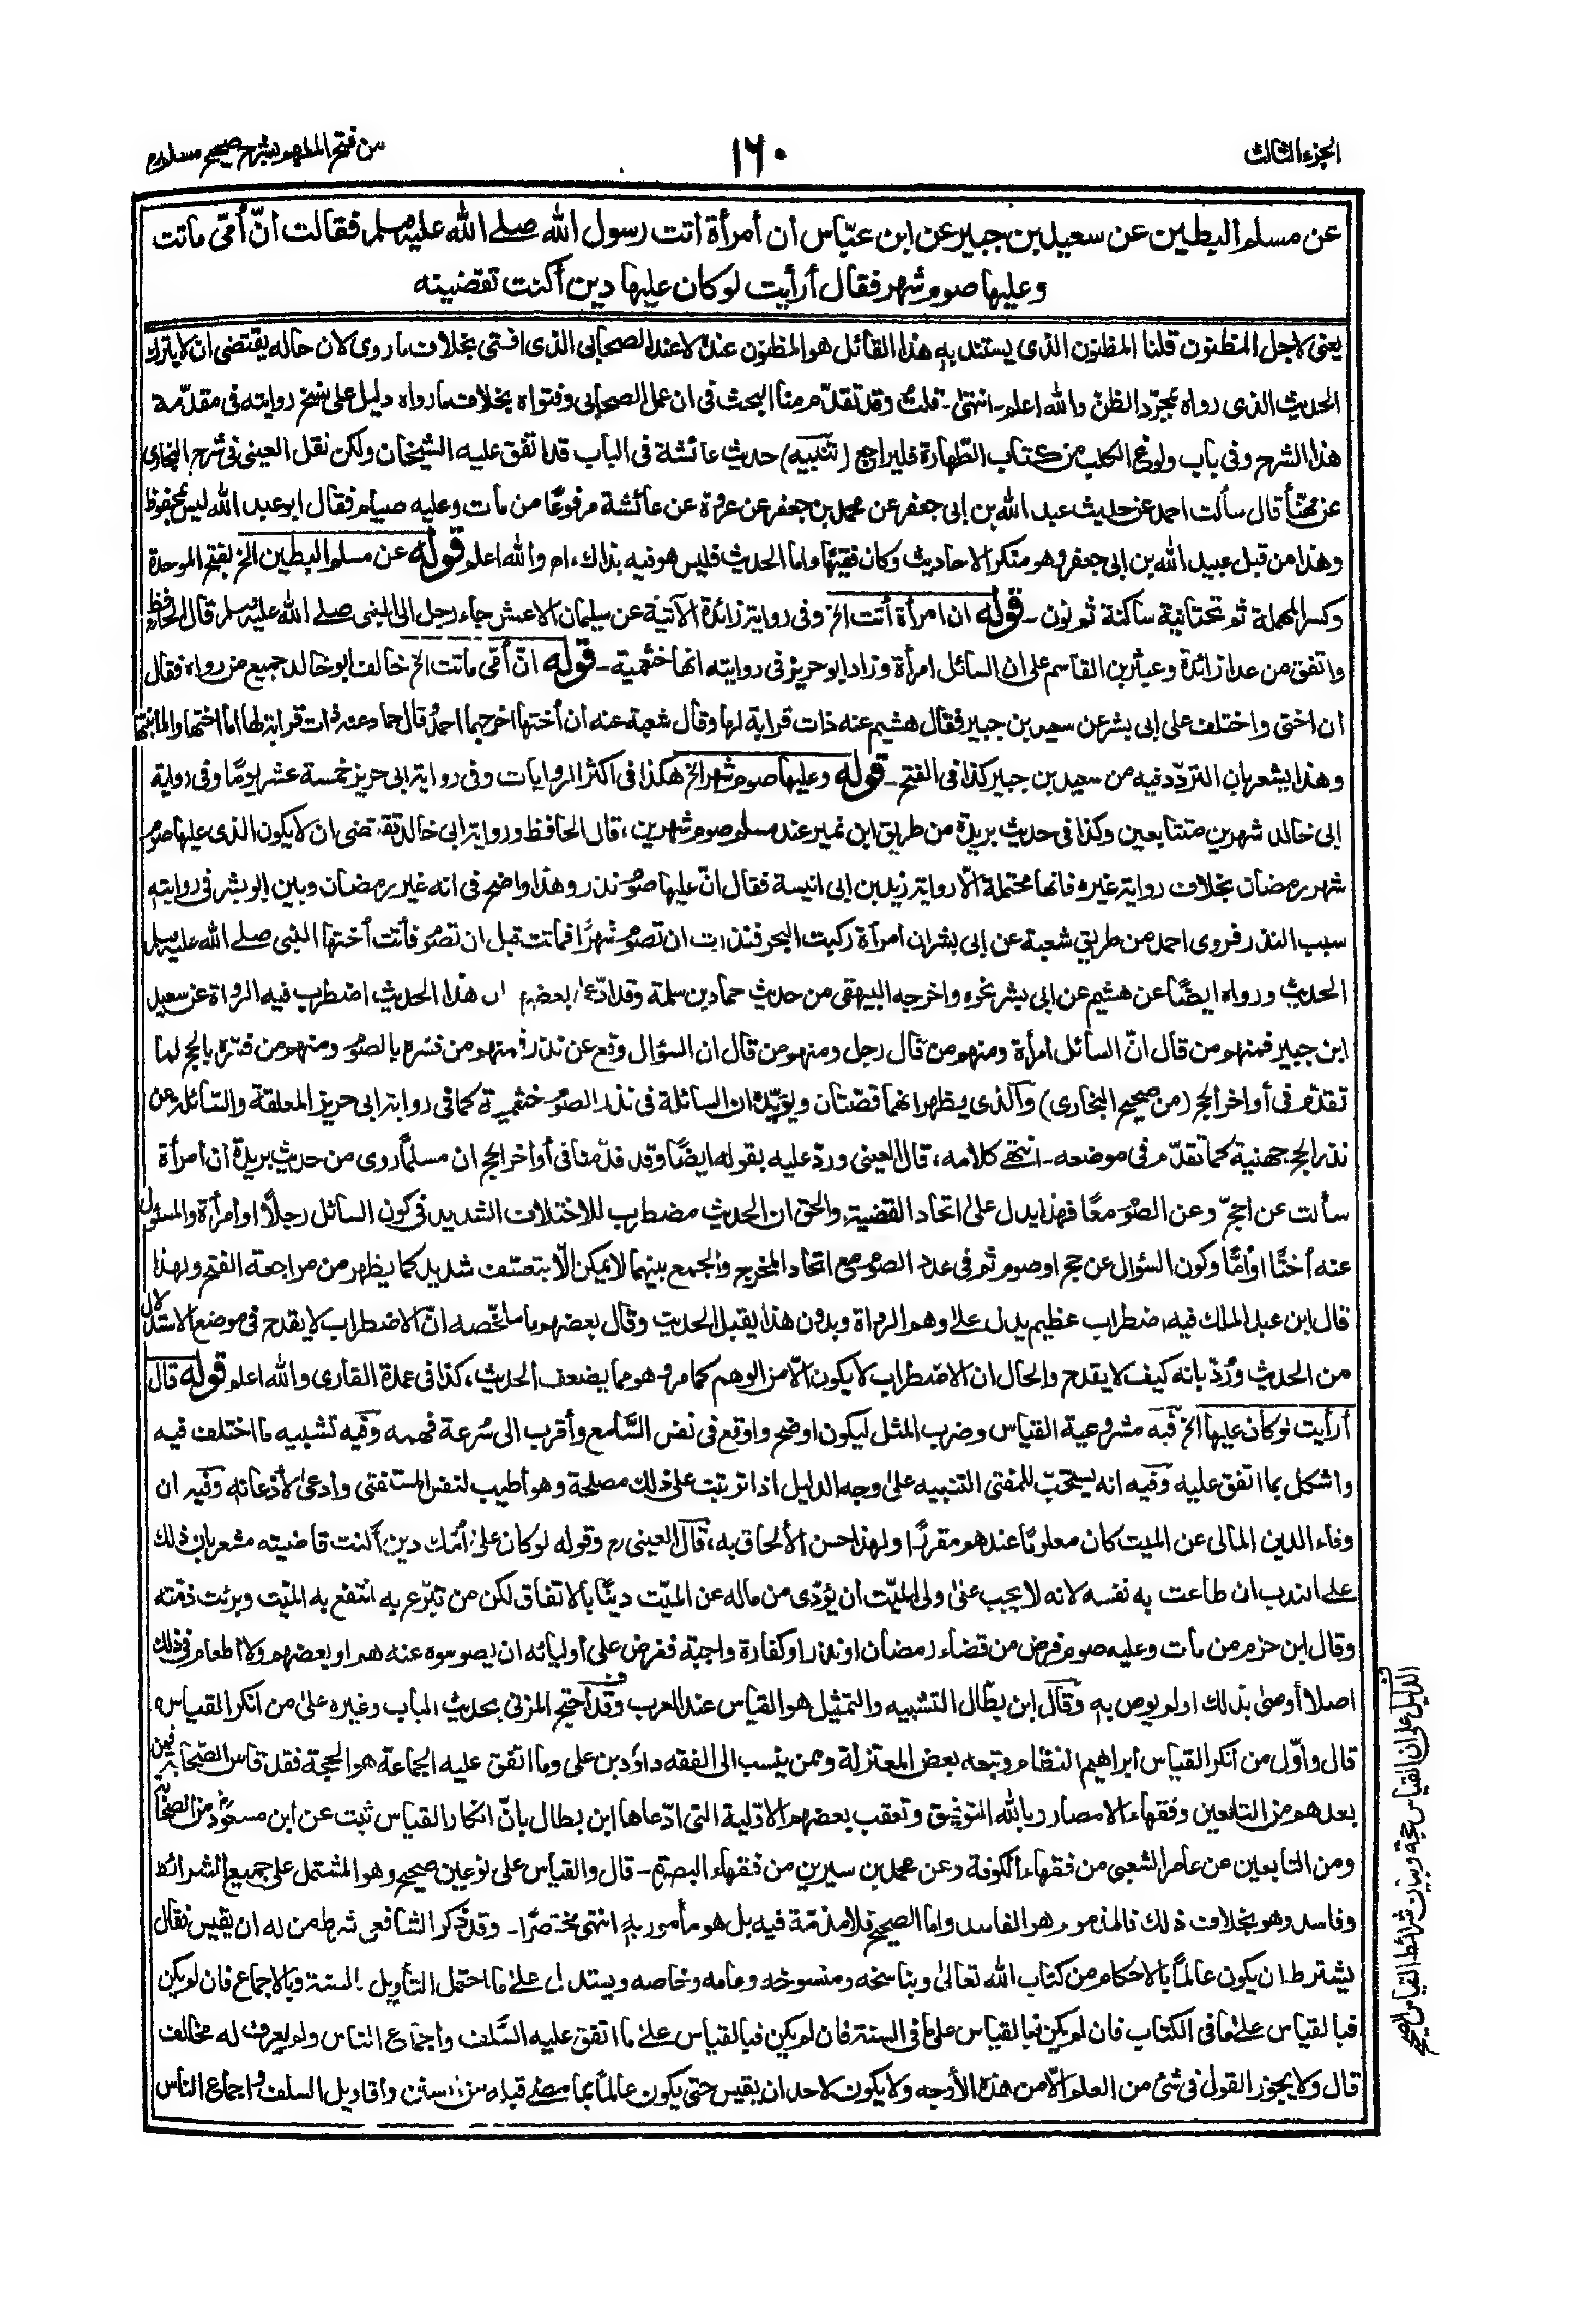 الجزء الثالث
١٦٠
من فتح الملهم بشرح صحيح مسلم
عن مسلم البطين عن سعيد بن جبير عن ابن عبّاس ان أمرأة أتت رسول الله صلے الله عليه وسلم فقالت انّ أمّى ماتت
وعليها صوم شهر فقال أرأيت لو كان عليها دين أكنت تقضينه
يعنى لاجل المظنون قلنا المظنون الذى يستند به هذا القائل هو المظنون عنده لا عند الصحابى الذى افتى بخلاف ما روى لان حاله يقتضى ان لا يترك
الحديث الذى رواه بمجرّد الظن والله اعلم ـ انتهىٰ ـ قلت وقد تقدّم منا البحث فى ان عمل الصحابى وفتواه بخلاف ما رواه دليل على نسخ روايته فى مقدّمة
هذا الشرح وفى باب ولوغ الكلب من كتاب الطهارة فليراجع (تنبيه) حديث عائشة فى الباب قد اتفق عليه الشيخان ولكن نقل العينى فى شرح البخارى
عن مهنّأ قال سألت احمد عن حديث عبد الله بن ابى جعفر عن محمد بن جعفر عن عروة عن عائشة مرفوعًا من مات وعليه صيام فقال ابو عبد الله ليس بمحفوظ
وهذا من قبل عبيد الله بن ابى جعفر وهو منكر الاحاديث وكان فقيهًا واما الحديث فليس هو فيه بذاك، ام والله اعلم قوله عن مسلم البطين الخ بفتح الموحدة
وكسر المهملة ثم تحتانية ساكنة ثم نون ـ قوله ان امرأة أتت الخ وفى رواية زائدة الآتية عن سليمان الاعمش جاء رجل الى النبى صلے الله عليه وسلم قال الحافظ
واتفق من عدا زائدة وعبثر بن القاسم على ان السائل امرأة وزاد ابو حريز فى روايته انها خثعمية ـ قوله انّ أمّى ماتت الخ خالف ابو خالد جميع من رواه فقال
ان اختى واختلف على ابى بشر عن سعيد بن جبير فقال هشيم عنه ذات قرابة لها وقال شعبة عنه ان أختها اخرجهما احمد قال حماد عنه ذات قرابة لها اما اختها واما ابنتها
وهذا يشعر بان التردّد فيه من سعيد بن جبير كذا فى الفتح ـ قوله وعليها صوم شهر الخ هكذا فى أكثر الروايات وفى رواية ابى حريز خمسة عشر يومًا وفى رواية
ابى خالد شهرين متتابعين وكذا فى حديث بريدة من طريق ابن نمير عند مسلم صوم شهرين، قال الحافظ ورواية ابى خالد تقتضى ان لا يكون الذى عليها صوم
شهر رمضان بخلاف رواية غيره فانها محتملة الّا رواية زيد بن ابى انيسة فقال انّ عليها صوم نذر وهذا واضح فى انه غير رمضان وبين ابو بشر فى روايته
سبب النذر فروى احمد من طريق شعبة عن ابى بشر ان امرأة ركبت البحر فنذرت ان تصوم شهرًا فماتت قبل ان تصوم فأتت أختها النبى صلے الله عليه وسلم
الحديث ورواه ايضًا عن هشيم عن ابى بشر نحوه واخرجه البيهقى من حديث حماد بن سلمة وقد ادّعى بعضهم ان هذا الحديث اضطرب فيه الرواة عن سعيد
ابن جبير فمنهم من قال انّ السائل امرأة ومنهم من قال رجل ومنهم من قال ان السؤال وقع عن نذر فمنهم من فسّره بالصوم ومنهم من فسّره بالحج لما
تقدّم فى أواخر الحج (من صحيح البخارى) والذى يظهر انهما قصّتان ويؤيّده ان السائلة فى نذر الصوم خثعمية كما فى رواية ابى حريز المعلقة والسّائلة عن
نذر الحج جهنية كما تقدّم فى موضعه ـ انتهے كلامه، قال العينى وردّ عليه بقوله ايضًا وقد قدّمنا فى أواخر الحج ان مسلمًا روى من حديث بريدة ان امرأة
سألت عن الحجّ وعن الصوم معًا فهذا يدل على اتحاد القضية والحق ان الحديث مضطرب للاختلاف الشديد فى كون السائل رجلاً او امرأة والمسئول
عنه أختًا او أمًّا وكون السؤال عن حج او صوم ثم فى عدد الصوم مع اتحاد المخرج والجمع بينهما لا يمكن الّا بتعسّف شديد كما يظهر من مراجعة الفتح ولهذا
قال ابن عبد الملك فيه اضطراب عظيم يدل علے وهم الرواة وبدون هذا يقبل الحديث وقال بعضهم ما ملخّصه انّ الاضطراب لا يقدح فى موضع الاستدلال
من الحديث ورُدّ بانه كيف لا يقدح والحال ان الاضطراب لا يكون الّا من الوهم كما مر وهو مما يضعف الحديث، كذا فى عمدة القارى والله اعلم قوله قال
أرأيت لو كان عليها الخ فيه مشروعية القياس وضرب المثل ليكون اوضح واوقع فى نفس السّامع وأقرب الى سُرعة فهمه وفيه تشبيه ما اختلف فيه
واشكل بما اتفق عليه وفيه انه يستحبّ للمفتى التنبيه علىٰ وجه الدليل اذا ترتبت على ذلك مصلحة وهو أطيب لنفس المستفتى وأدعىٰ لأذعانه وفيه ان
وفاء الدين المالى عن الميت كان معلومًا عندهم مقررًا ولهذا حسن الألحاق به، قال العينى رح وقوله لو كان علىٰ امّك دين أكنت قاضيته مشعر بان ذلك
علے الندب ان طاعت به نفسه لانه لا يجب علىٰ ولى الميّت ان يؤدّى من ماله عن الميّت دينًا بالاتفاق لكن من تبرّع به انتفع به الميّت وبرئت ذمّته
وقال ابن حزم من مات وعليه صوم فرض من قضاء رمضان او نذر او كفارة واجبة ففرض على أوليائه ان يصوموه عنه هم او بعضهم ولا اطعام فى ذلك
اصلاً أوصىٰ بذلك اولم يوص به وقال ابن بطال التشبيه والتمثيل هو القياس عند العرب وقد احتج المزنى بحديث الباب وغيره علىٰ من انكر القياس،
قال واوّل من انكر القياس ابراهيم النظام وتبعه بعض المعتزلة وممن ينسب الى الفقه داؤد بن على وما اتفق عليه الجماعة هو الحجة فقد قاس الصّحابة فمن
بعدهم من التابعين وفقهاء الامصار وبالله التوفيق وتعقب بعضهم الاوّلية التى ادّعاها ابن بطال بانّ انكار القياس ثبت عن ابن مسعود من الصحابة
ومن التابعين عن عامر الشعبى من فقهاء الكوفة وعن محمد بن سيرين من فقهاء البصرة ـ قال والقياس على نوعين صحيح وهو المشتمل على جميع الشرائط
وفاسد وهو بخلاف ذلك فالمذموم هو الفاسد واما الصحيح فلا مذمّة فيه بل هو مأمور به انتهى مختصرًا ـ وقد ذكر الشافعى شرط من له ان يقيس فقال
يشترط ان يكون عالمًا بالاحكام من كتاب الله تعالىٰ وبناسخه ومنسوخه وعامه وخاصه ويستدل علىٰ ما احتمل التأويل بالسنة وبالاجماع فان لم يكن
فبالقياس علىٰ ما فى الكتاب فان لم يكن فبالقياس على ما فى السنة فان لم يكن فبالقياس علىٰ ما اتفق عليه السّلف واجماع الناس ولم يعرف له مخالف
قال ولا يجوز القول فى شئ من العلم الّا من هذه الأوجه ولا يكون لاحد ان يقيس حتى يكون عالمًا بما مضے قبله من السنن وأقاويل السلف واجماع الناس
الدليل على ان القياس حجة وبيان شرائط القياس الصحيح